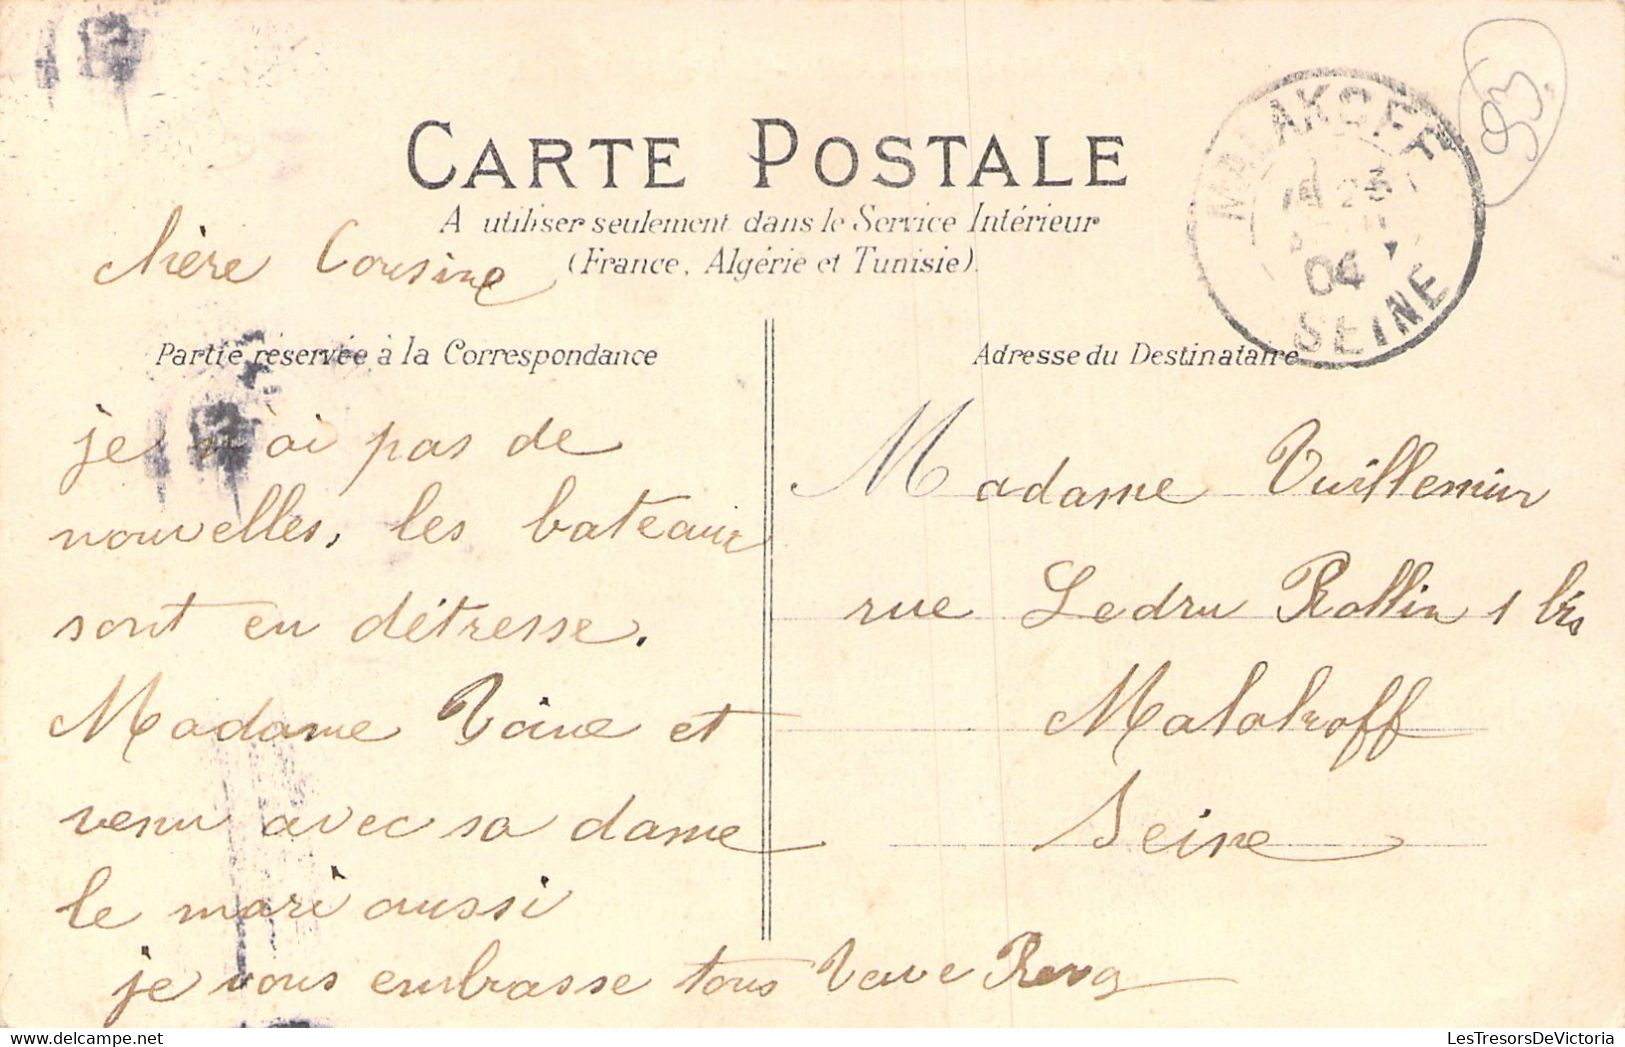 CARTE POSTALE
A utiliser seulement dans le Service Intérieur
(France, Algérie et Tunisie).
MALAKOFF
04
SEINE
93
Chère Cousine
Partie réservée à la Correspondance
je n'ai pas de
nouvelles, les bateaux
sont en détresse.
Madame et
venu avec sa dame
le mari aussi
je vous embrasse tous
Adresse du Destinataire
Madame Vuillemin
rue Ledru Rollin 1 bis
Malakoff
Seine
LesTresorsDeVictoria